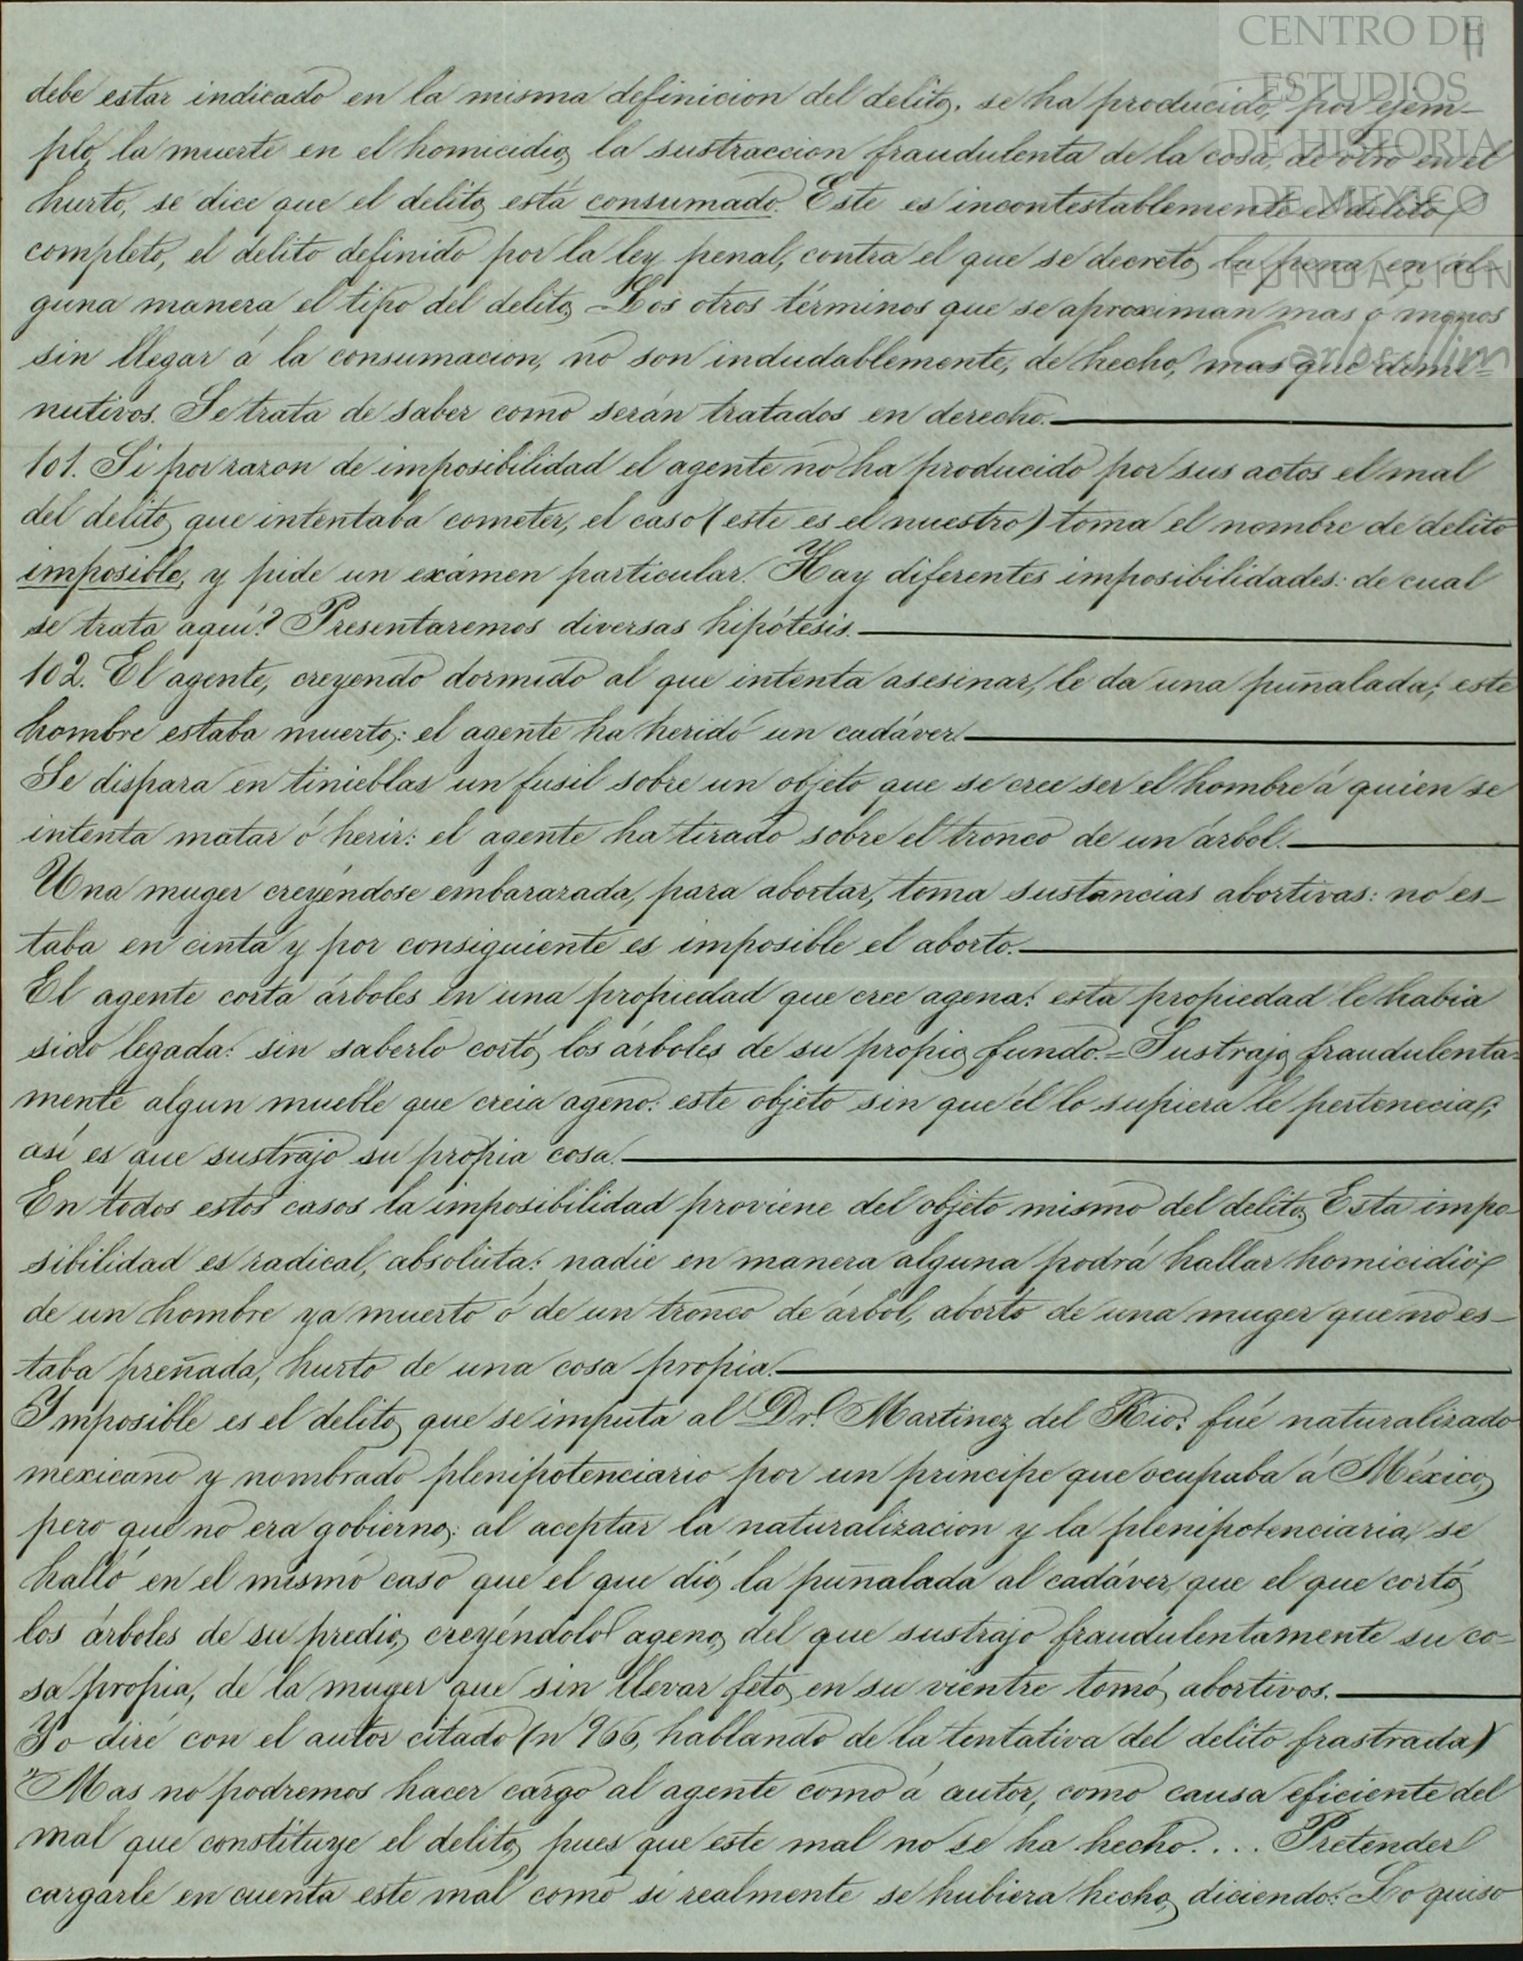 CENTRO DE
ESTUDIOS
DE HISTORIA
DE MEXICO
FUNDACION
Carlos Slim
11
debe estar indicado en la misma definicion del delito, se ha producido, por ejem-
plo, la muerte en el homicidio, la sustraccion fraudulenta de la cosa, de otro en el
hurto, se dice que el delito está consumado. Este es incontestablemente el delito
completo, el delito definido por la ley penal, contra el que se decretó la pena, en al-
guna manera el tipo del delito. =Los otros términos que se aproximan mas ó menos
sin llegar á la consumacion, no son indudablemente, de hecho, mas que dimi-
nutivos. Se trata de saber como serán tratados en derecho.
101. Si por razon de imposibilidad el agente no ha producido por sus actos el mal
del delito, que intentaba cometer, el caso (este es el nuestro) toma el nombre de delito
imposible, y pide un exámen particular. Hay diferentes imposibilidades: de cual
se trata aquí? Presentaremos diversas hipótesis.
102. El agente, creyendo dormido al que intenta asesinar, le da una puñalada; este
hombre estaba muerto: el agente ha herido un cadáver.
Se dispara en tinieblas un fusil sobre un objeto que se cree ser el hombre á quien se
intenta matar ó herir: el agente ha tirado sobre el tronco de un árbol.
Una muger creyéndose embarazada, para abortar, toma sustancias abortivas: no es-
taba en cinta y por consiguiente es imposible el aborto.
El agente corta árboles en una propiedad que cree agena: esta propiedad le habia
sido legada: sin saberlo cortó los árboles de su propio fundo.=Sustrajo fraudulenta-
mente algun mueble que creia ageno: este objeto sin que él lo supiera le pertenecia;
así es que sustrajo su propia cosa.
En todos estos casos la imposibilidad proviene del objeto mismo del delito. Esta impo-
sibilidad es radical, absoluta: nadie en manera alguna podrá hallar homicidio
de un hombre ya muerto ó de un tronco de árbol, aborto de una muger que no es-
taba preñada, hurto de una cosa propia.
Imposible es el delito que se imputa al Dr. Martinez del Rio: fué naturalizado
mexicano y nombrado plenipotenciario por un principe que ocupaba á México,
pero que no era gobierno; al aceptar la naturalizacion y la plenipotenciaria, se
halló en el mismo caso que el que dió la puñalada al cadáver, que el que cortó
los árboles de su predio, creyéndolo ageno, del que sustrajo fraudulentamente su co-
sa propia, de la muger que sin llevar feto en su vientre tomó abortivos.
Yo diré con el autor citado (n 966, hablando de la tentativa del delito frastrada)
"Mas no podremos hacer cargo al agente como á autor, como causa eficiente del
mal que constituye el delito, pues que este mal no se ha hecho.... Pretender
cargarle en cuenta este mal como si realmente se hubiera hecho, diciendo: Lo quiso